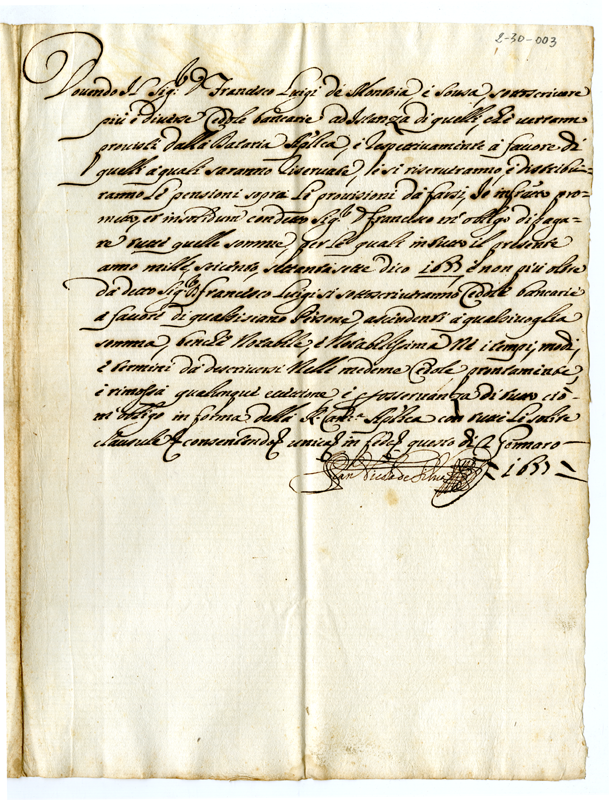 2-30-003
Dovendo Il Sigr. D. Francisco Luigi de Montoia è Sousa sottoscrivere
più è diverse Cedole bancarie ad Istanza di quelli, che verranno
provisti dalla Dataria Aplica, è respectivamente à favore di
quelli à quali saranno riservate, è si riserveranno è distribui-
ranno le pensioni sopra le provisioni da farsi, Io infrãtto pro-
metto, et in solidum con detto Sigr. D. Francisco m'obligo di paga-
re tutte quelle somme, per le quali in tutto il presente
anno mille, seicento, settanta sette dico 1677 è non più oltre
da detto Sigr. D. Francisco Luigi si sottoscriveranno Cedole bancarie
à favore di qualsisiano Persone ascendenti à qualsivoglia
somma, benche Notabile, è Notabilissima Nè i tempi, modi,
è termini da descriversi Nelle medeme Cedole prontamente,
è rimossa qualunque eccetione, è osservanza di tutto ciò
m'obligo in forma della R. Cam. Aplica con tutte le solite
clausule consentendo unica in fede questo dì Gennaro
1677